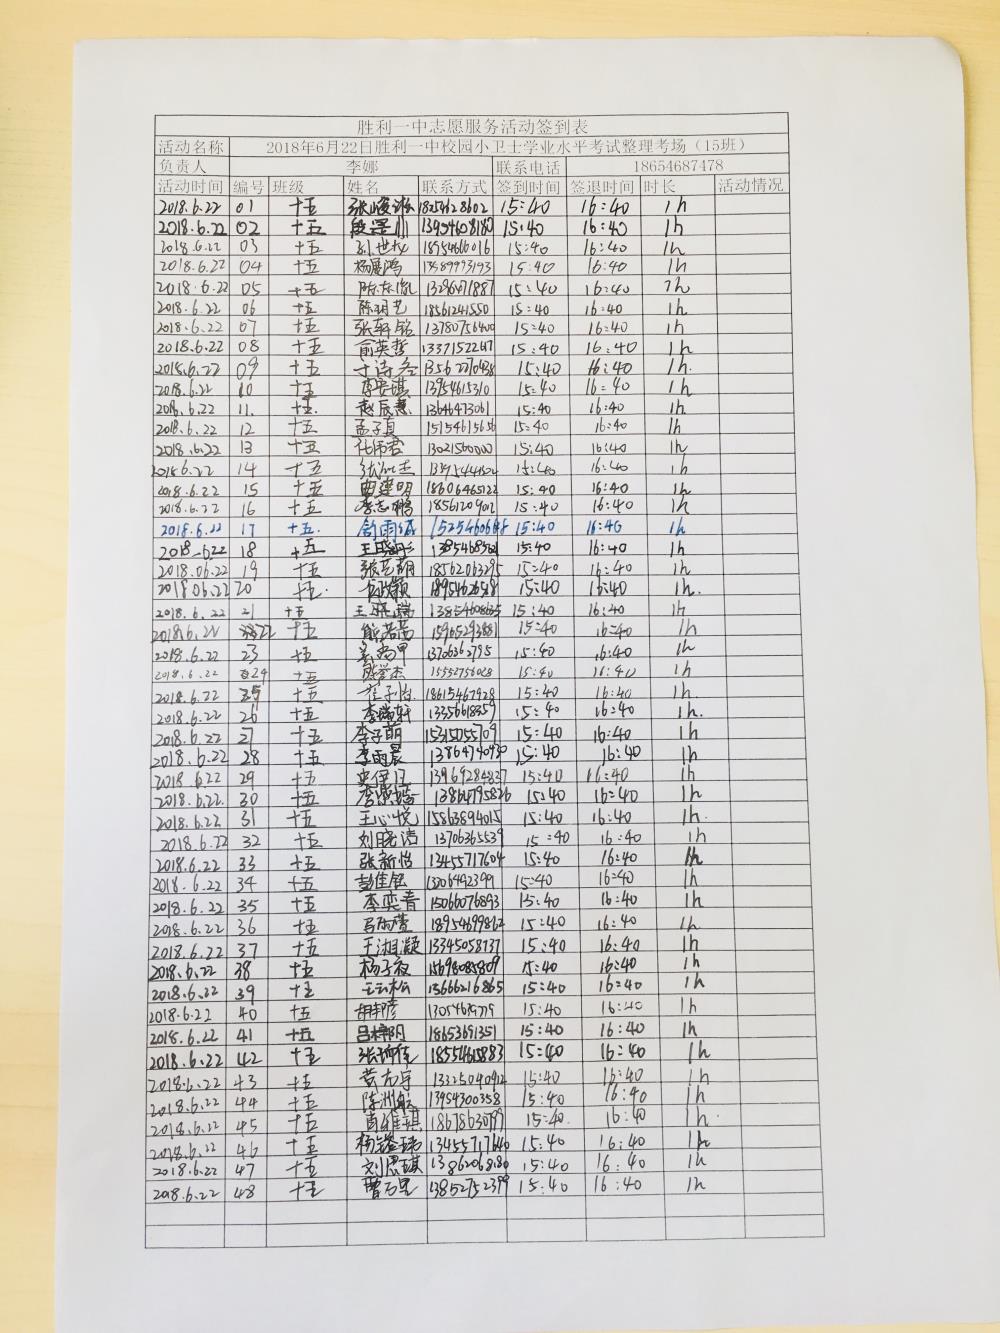 胜利一中志愿服务活动签到表
活动名称 2018年6月22日胜利一中校园小卫士学业水平考试整理考场（15班）
负责人 李娜 联系电话 18654687478
活动时间 编号 班级 姓名 联系方式 签到时间 签退时间 时长 活动情况
2018.6.22 01 十五 18254628602 15:40 16:40 1h
2018.6.22 02 十五 13954608180 15:40 16:40 1h
2018.6.22 03 十五 刘世权 18954666016 15:40 16:40 1h
2018.6.22 04 十五 杨展鸿 15:40 16:40 1h
2018.6.22 05 十五 15:40 16:40 1h
2018.6.22 06 十五 陈玥艺 18561241550 15:40 16:40 1h
2018.6.22 07 十五 张轩铭 13780756400 15:40 16:40 1h
2018.6.22 08 十五 俞英哲 15:40 16:40 1h
2018.6.22 09 十五 于诗冬 15:40 16:40 1h.
2018.6.22 10 十五 13954615310 15:40 16:40 1h
2018.6.22 11. 十五. 赵辰慧 13646473061 15:40 16:40 1h
2018.6.22 12 十五 孟子真 15154615656 15:40 16:40 1h
2018.6.22 13 十五 13021560000 15:40 16:40 1h
2018.6.22 14 十五 15:40 16:40 1h
2018.6.22 15 十五 曲建明 18606465122 15:40 16:40 1h
2018.6.22 16 十五 李志鹏 15:40 16:40 1h
2018.6.22 17 十五. 15:40 16:40 1h
2018.6.22 18 十五 王晓彤 15:40 16:40 1h
2018.06.22 19 十五 张艺萌 18562063295 15:40 16:40 1h
2018.06.22 20 十五. 15:40 16:40 1h
2018.6.22 21 十五 王晓瑞 13854608635 15:40 16:40 1h
2018.6.22 22 十五 15965293881 15:40 16:40 1h
2018.6.22 23 十五 13706362795 15:40 16:40 1h
2018.6.22 24 十五 15552756028 15:40 16:40 1h
2018.6.22 25 十五 18615467928 15:40 16:40 1h
2018.6.22 26 十五 李瑞轩 13356618359 15:40 16:40 1h.
2018.6.22 27 十五 李子萌 15315055709 15:40 16:40 1h
2018.6.22 28 十五 李雨晨 13864740430 15:40 16:40 1h
2018.6.22 29 十五 13969284837 15:40 16:40 1h
2018.6.22. 30 十五 13864795826 15:40 16:40 1h
2018.6.22 31 十五 王心悦 15863894015 15:40 16:40 1h.
2018.6.22 32 十五 刘晓洁 13706365539 15:40 16:40 1h
2018.6.22 33 十五 张新怡 13455717604 15:40 16:40 1h
2018.6.22 34 十五 彭佳钰 13206492399 15:40 16:40 1h
2018.6.22 35 十五 李奕青 15066076893 15:40 16:40 1h
2018.6.22 36 十五 马雨萱 18954699862 15:40 16:40 1h
2018.6.22 37 十五 王湘凝 13345058737 15:40 16:40 1h
2018.6.22 38 十五 杨子夜 15698085809 15:40 16:40 1h
2018.6.22 39 十五 王云松 13666216865 15:40 16:40 1h
2018.6.22 40 十五 胡邦彦 15:40 16:40 1h
2018.6.22 41 十五 吕梓阴 18653691351 15:40 16:40 1h
2018.6.22 42 十五 18554615883 15:40 16:40 1h
2018.6.22 43 十五 黄志宇 13325040912 15:40 16:40 1h
2018.6.22 44 十五 陈洲航 13954300358 15:40 16:40 1h
2018.6.22 45 十五 肖维琪 18678630799 15:40. 16:40 1h.
2018.6.22 46 十五 13455717640 15:40 16:40 1h
2018.6.22 47 十五 刘思琪 13862068080 15:40 16:40 1h
2018.6.22 48 十五 13852752399 15:40 16:40 1h